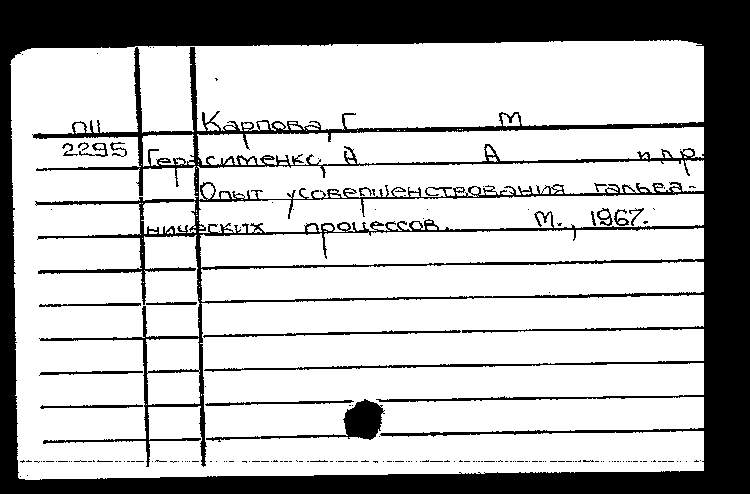 ПII Карпова, Г М
2295 Герасименко, А А и др.
Опыт усовершенствования гальва-
нических процессов. М., 1967.